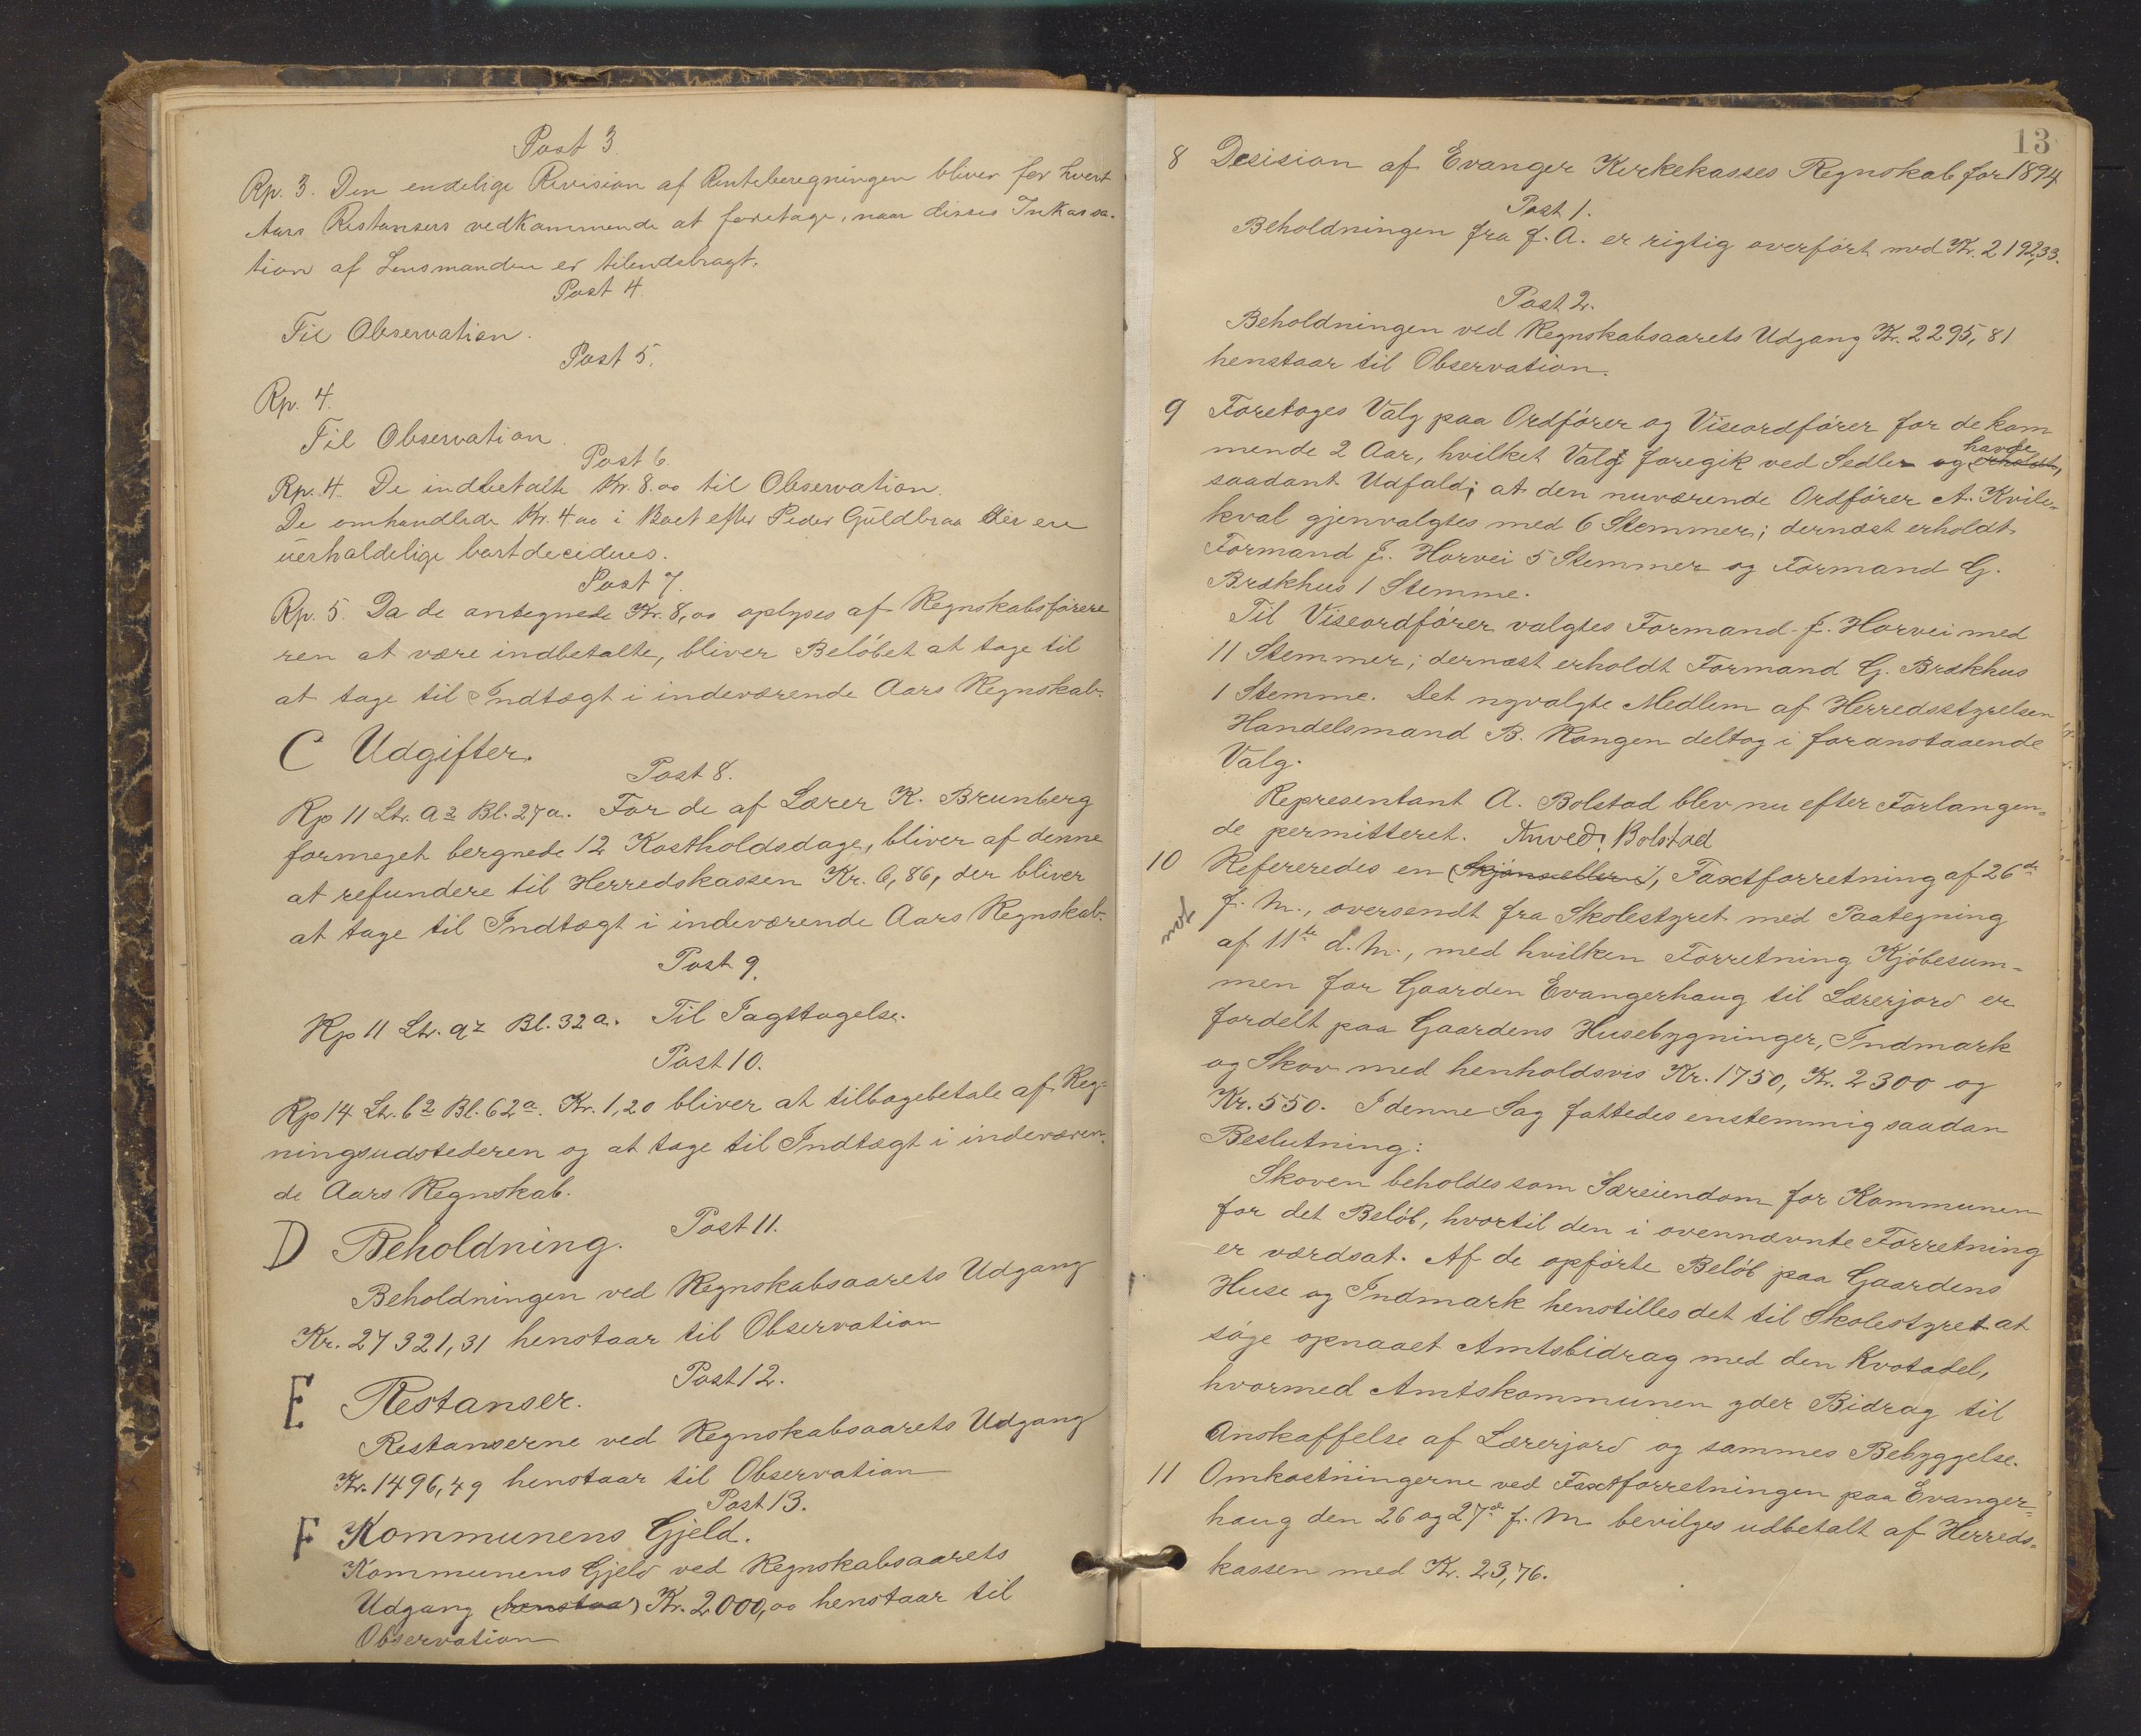 Post 3.
Rp. 3. Den endelige Revision af Renteberegningen bliver for hvert
Aars Restansers vedkommende at foretage, naar disses Inkassa-
tion af Lensmanden er tilendebragt.
Post 4.
Til Observation.
Post 5.
Rp. 4.
Til Observation.
Post 6.
Rp. 4. De indbetalte Kr. 8.00 til Observation.
De omhandlede Kr. 4.00 i Boet efter Peder Guldbraa der er
uerholdelige bortdecideres.
Post 7.
Rp. 5. Da de antegnede Kr. 8,00 oplyses af Regnskabsförere
ren at være indbetalte, bliver Belöbet at tage til
at tage til Indtægt i indeværende Aars Regnskab.
C Udgifter.
Post 8.
Rp 11 Ltr. a2 Bl. 27a. For de af Lærer K. Brunberg
formeget beregnede 12 Kostholdsdage, bliver af denne
at refundere til Herredskassen Kr. 6,86, der bliver
at tage til Indtægt i indeværende Aars Regnskab.
Post 9.
Rp 11 Ltr. a2 Bl. 32a. Til Iagttagelse.
Post 10.
Rp 14 Ltr. b2 Bl. 62a. Kr. 1,20 bliver at tilbagebetale af Reg-
ningsudstederen og at tage til Indtægt i indeværen-
de Aars Regnskab.
Post 11.
D Beholdning.
Beholdningen ved Regnskabsaarets Udgang
Kr. 27321,31 henstaar til Observation
Post 12.
E Restanser.
Restanserne ved Regnskabsaarets Udgang
Kr. 1496,49 henstaar til Observation
Post 13.
F Kommunens Gjeld.
Kommunens Gjeld ved Regnskabsaarets
Udgang (henstaar) Kr. 2000,00 henstaar til
Observation
13
8 Desision af Evanger Kirkekasses Regnskab for 1894
Post 1.
Beholdningen fra f. A. er rigtig overfört med Kr. 2192,33.
Post 2.
Beholdningen ved Regnskabsaarets Udgang Kr. 2295,81
henstaar til Observation.
9 Foretoges Valg paa Ordförer og Viseordförer for de kom
mende 2 Aar, hvilket Valg foregik ved Sedler og (erholdt) havde
saadant Udfald; at den nuværende Ordförer A. Kvile-
kval gjenvalgtes med 6 Stemmer; dernæst erholdt
Formand J. Horvei 5 Stemmer og Formand G.
Brækhus 1 Stemme.
Til Viseordförer valgtes Formand J. Horvei med
11 Stemmer; dernæst erholdt Formand G. Brækhus
1 Stemme. Det nyvalgte Medlem af Herredsstyrelsen
Handelsmand B. Rongen deltog i foranstaaende
Valg.
Representant A. Bolstad blev nu efter Forlangen-
de permitteret. Anved. Bolstad
10 Refereredes en (Skjöns eller), Taxtforretning af 26de
not
f. M., oversendt fra Skolestyret med Paategning
af 11te d. M., med hvilken Forretning Kjöbesum-
men for Gaarden Evangerhaug til Lærerjord er
fordelt paa Gaardens Husebygninger, Indmark
og Skov med henholdsvis Kr. 1750, Kr. 2300 og
Kr. 550. I denne Sag fattedes enstemmig saadan
Beslutning:
Skoven beholdes som Særeiendom for Kommunen
for det Belöb, hvortil den i ovennævnte Forretning
er værdsat. Af de opförte Belöb paa Gaardens
Huse og Indmark henstilles det til Skolestyret at
söge opnaaet Amtsbidrag med den Kvotadel,
hvormed Amtskommunen yder Bidrag til
Anskaffelse af Lærerjord og sammes Bebyggelse.
11 Omkostningerne ved Taxtforretningen paa Evanger-
haug den 26 og 27de f. M. bevilges udbetalt af Herreds-
kassen med Kr. 23,76.